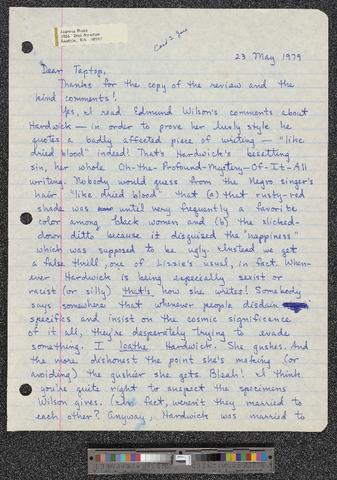 Joanna Russ
Seattle, WA
Card 2 gone
23 May 1979
Dear Taptop,
Thanks for the copy of the review and the
kind comments!
Yes, I read Edmund Wilson's comments about
Hardwick — in order to prove her lively style he
quotes a badly affected piece of writing — "like
dried blood" indeed! That's Hardwick's besetting
sin, her whole Oh-the-Profound-Mystery-Of-It-All
writing. Nobody would guess from the Negro singer's
hair "like dried blood" that (a) that rusty-red
shade was until very frequently a favorite
color among black women and (b) the slicked-
down ditto because it disguised the "nappiness"
which was supposed to be ugly. Instead we get
a false thrill, one of Lizzie's usual, in fact. When-
ever Hardwick is being especially sexist or
racist (or silly) that's how she writes! Somebody
says somewhere that whenever people disdain
specifics and insist on the cosmic significance
of it all, they're desperately trying to evade
something. I loathe Hardwick. She gushes. And
the more dishonest the point she's making (or
avoiding) the gushier she gets. Bleah! I think
you're quite right to suspect the specimens
Wilson gives. (In fact, weren't they married to
each other? Anyway, Hardwick was married to